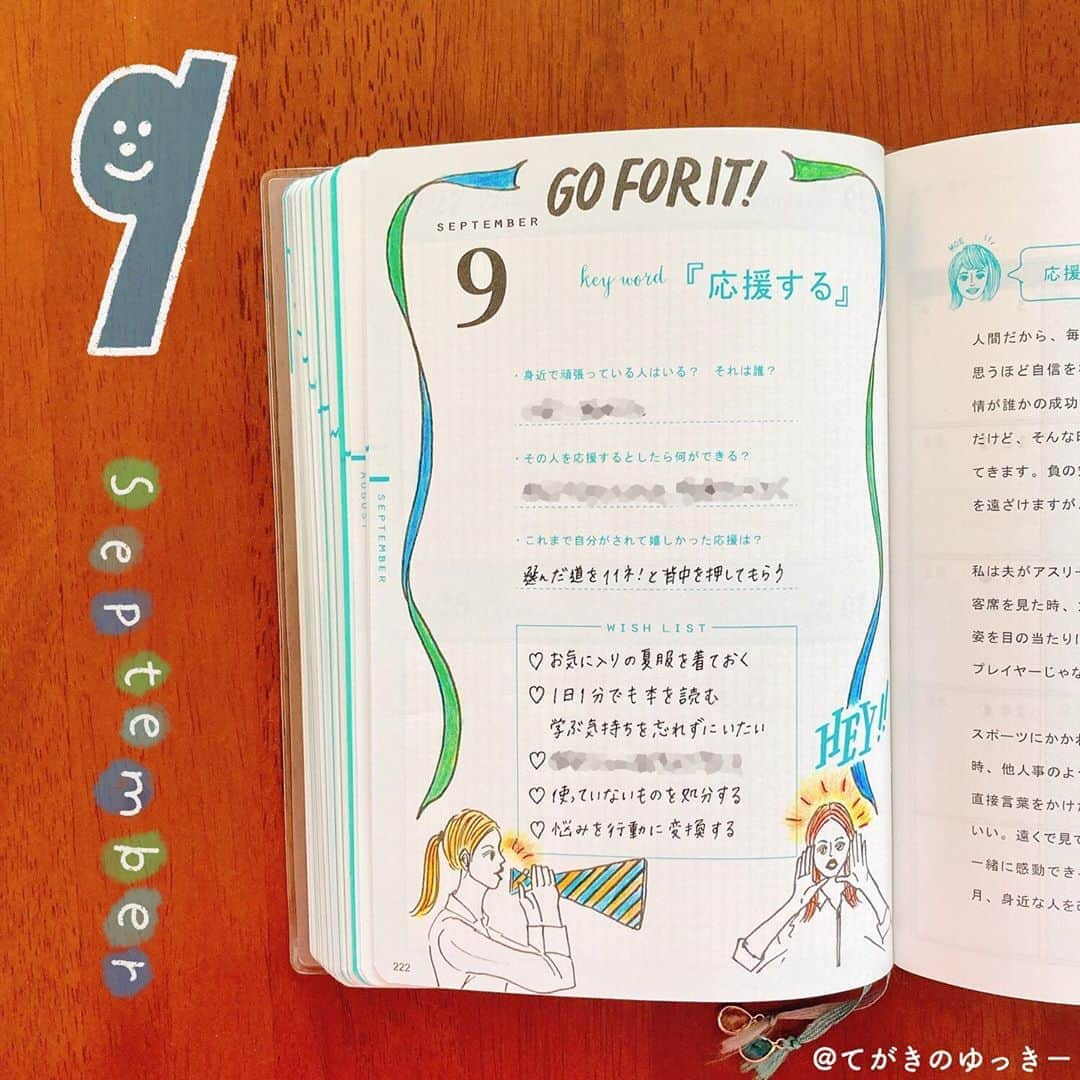 9
September
GO FOR IT!
SEPTEMBER
9
key word『応援する』
・身近で頑張っている人はいる？ それは誰？
・その人を応援するとしたら何ができる？
・これまで自分がされて嬉しかった応援は？
選んだ道をイイネ!と背中を押してもらう
WISH LIST
♡お気に入りの夏服を着ておく
♡1日1分でも本を読む
学ぶ気持ちを忘れずにいたい
♡
♡使っていないものを処分する
♡悩みを行動に変換する
HEY!!
222
AUGUST
SEPTEMBER
MOE
応援
人間だから、毎
思うほど自信を
情が誰かの成功
だけど、そんな
てきます。負の
を遠ざけますが、
私は夫がアスリー
客席を見た時、
姿を目の当たりに
プレイヤーじゃな
スポーツにかかわ
時、他人事のよ
直接言葉をかけ
いい。遠くで見て
一緒に感動でき
月、身近な人を
@てがきのゆっきー